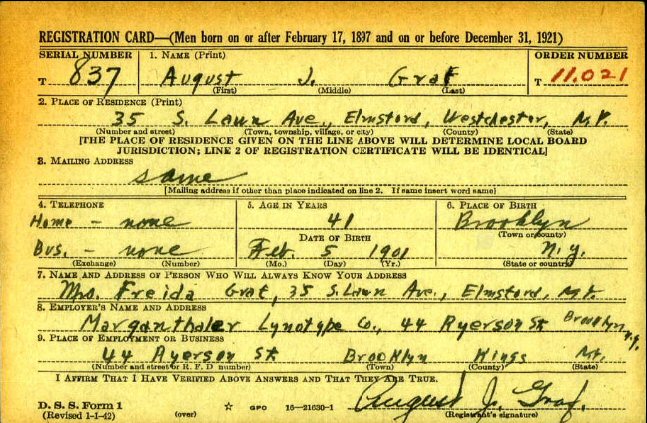 REGISTRATION CARD—(Men born on or after February 17, 1897 and on or before December 31, 1921)
SERIAL NUMBER 1. NAME (Print) ORDER NUMBER
T 837 August J. Graf T 11,021
(First) (Middle) (Last)
2. PLACE OF RESIDENCE (Print)
35 S. Lawn Ave., Elmsford, Westchester, N.Y.
(Number and street) (Town, township, village, or city) (County) (State)
[THE PLACE OF RESIDENCE GIVEN ON THE LINE ABOVE WILL DETERMINE LOCAL BOARD
JURISDICTION; LINE 2 OF REGISTRATION CERTIFICATE WILL BE IDENTICAL]
3. MAILING ADDRESS
same
[Mailing address if other than place indicated on line 2. If same insert word same]
4. TELEPHONE 5. AGE IN YEARS 6. PLACE OF BIRTH
Home - none 41 Brooklyn
DATE OF BIRTH (Town or county)
Bus. - none Feb. 5 1901 N.Y.
(Exchange) (Number) (Mo.) (Day) (Yr.) (State or country)
7. NAME AND ADDRESS OF PERSON WHO WILL ALWAYS KNOW YOUR ADDRESS
Mrs. Freida Graf, 35 S. Lawn Ave., Elmsford, N.Y.
8. EMPLOYER'S NAME AND ADDRESS
Marganthaler Lynotype Co., 44 Ryerson St Brooklyn N.Y.
9. PLACE OF EMPLOYMENT OR BUSINESS
44 Ryerson St Brooklyn Kings N.Y.
(Number and street or R. F. D number) (Town) (County) (State)
I AFFIRM THAT I HAVE VERIFIED ABOVE ANSWERS AND THAT THEY ARE TRUE.
D. S. S. Form 1 August J. Graf.
(Revised 1-1-42) (over) ☆ GPO 16—21630-1 (Registrant's signature)